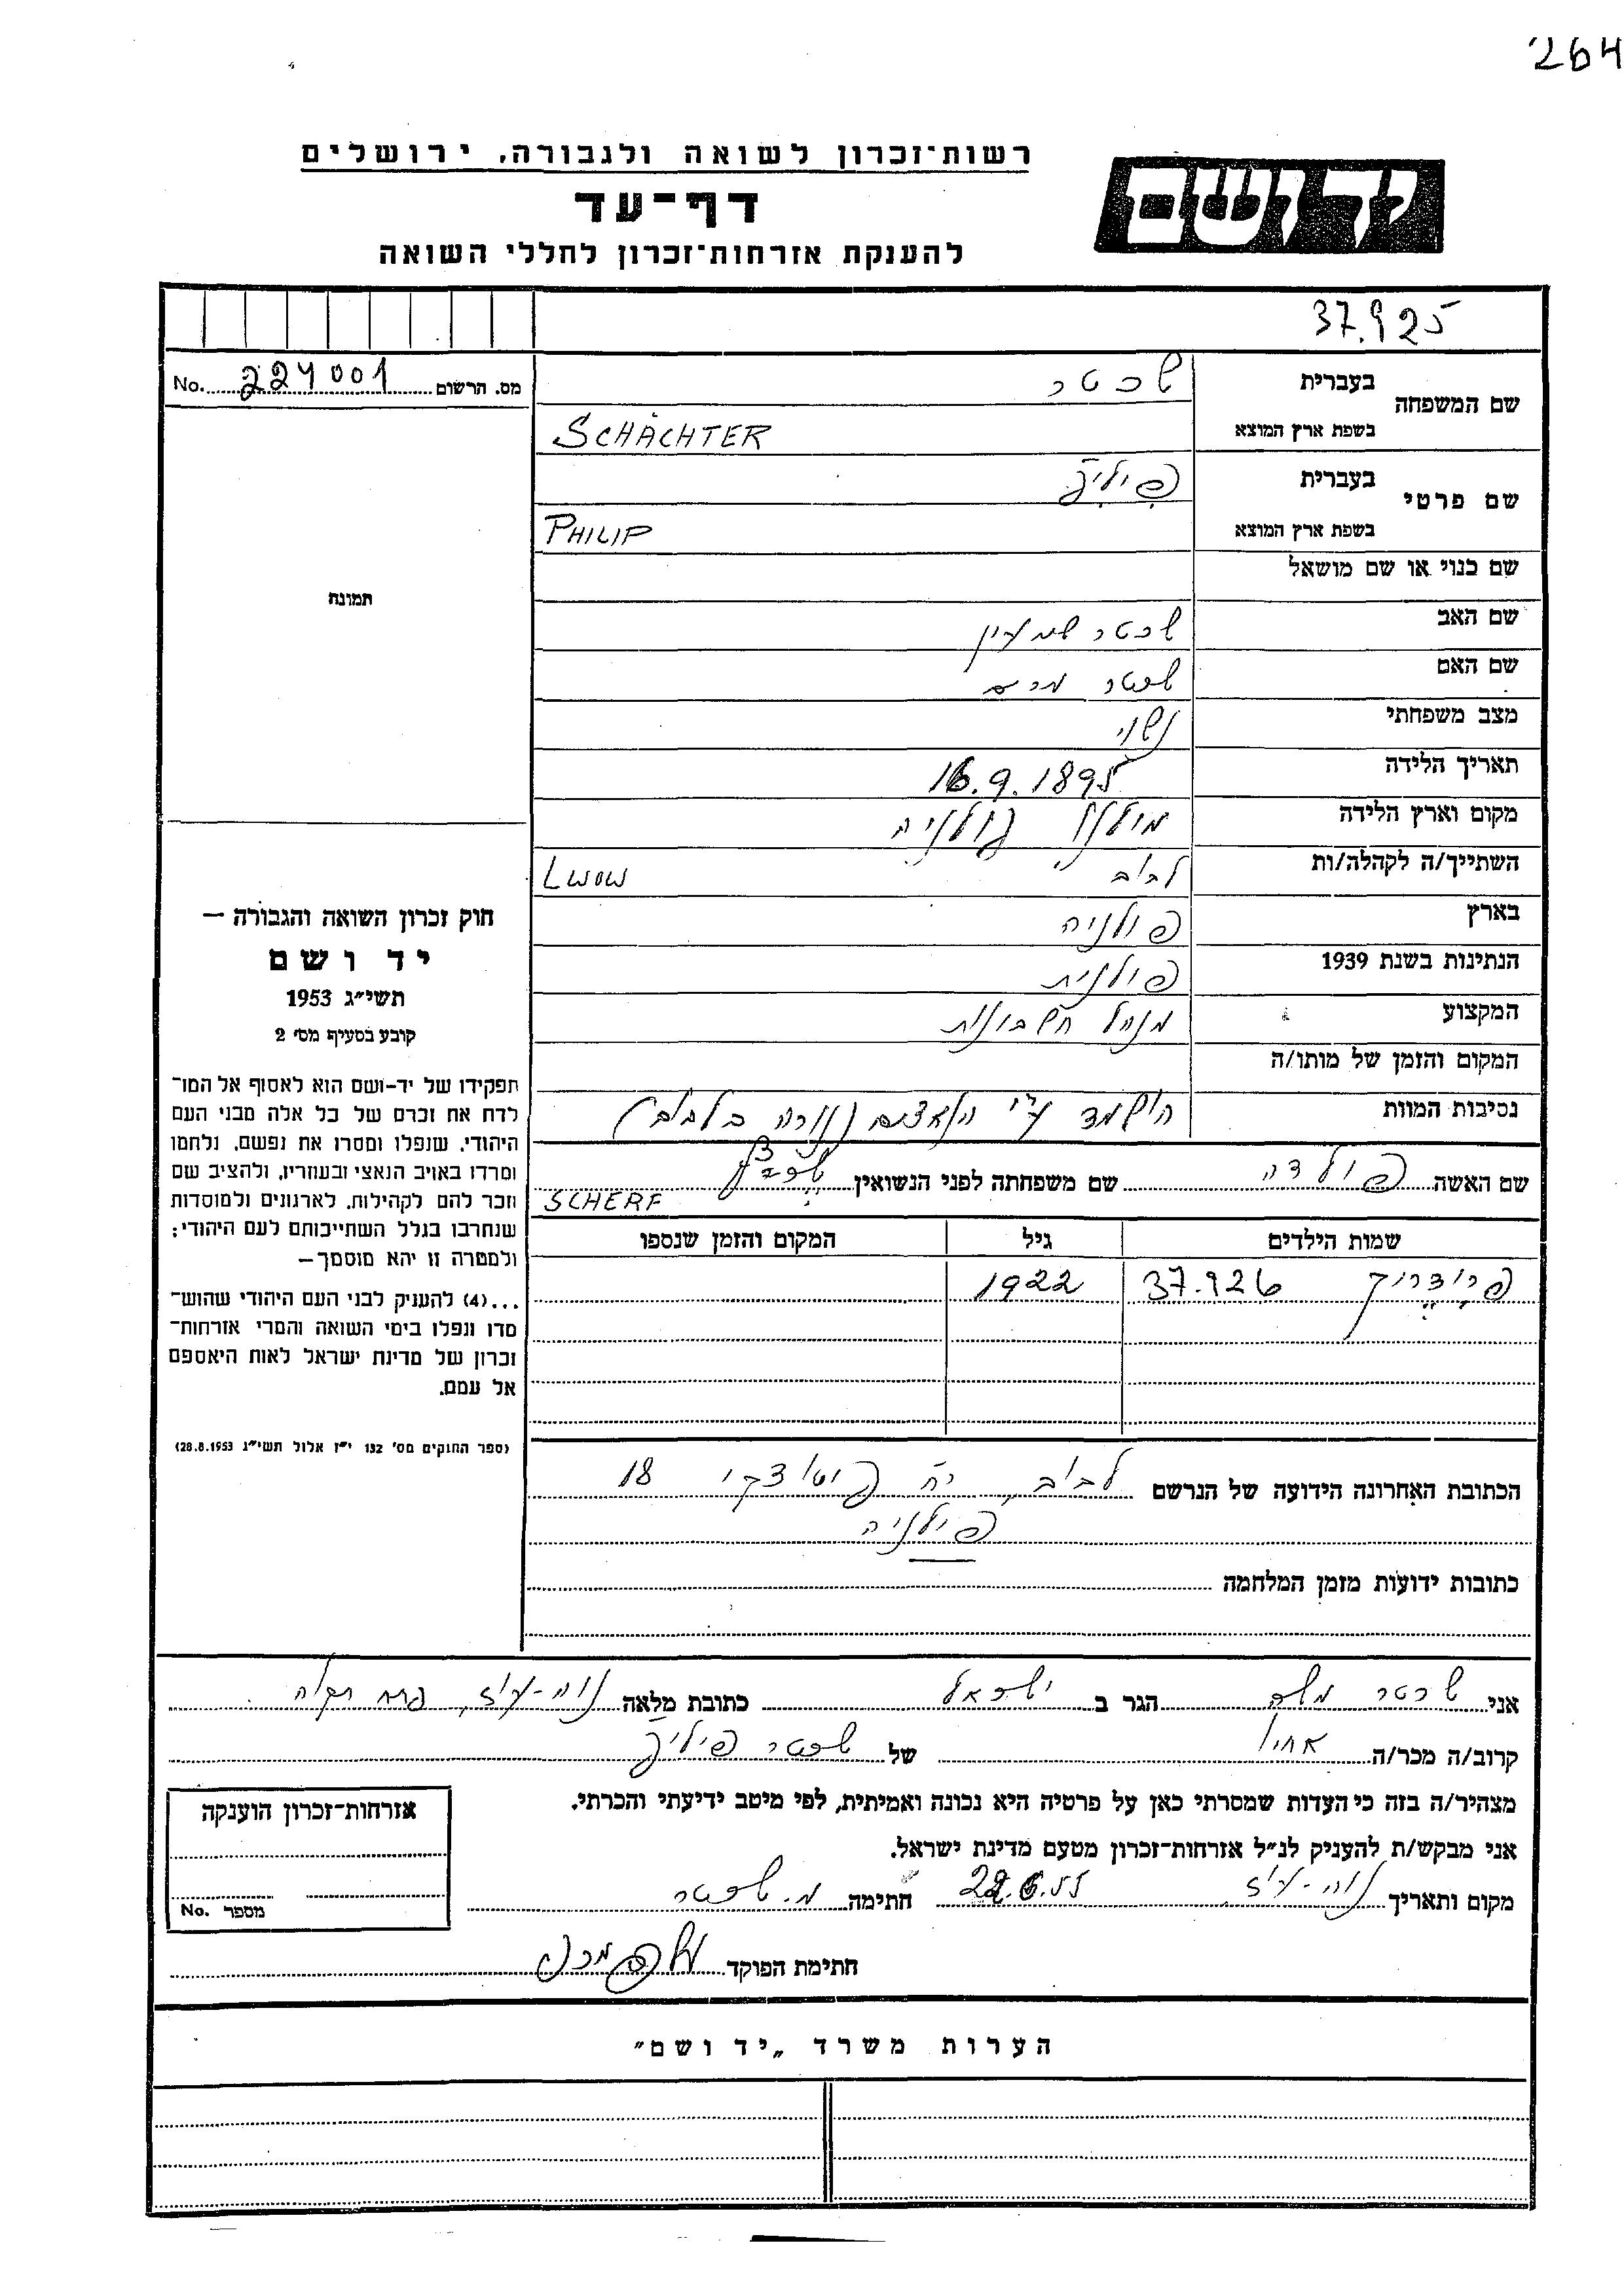 264
רשות־זכרון לשואה ולגבורה, ירושלים
יד ושם
דף־עד
להענקת אזרחות־זכרון לחללי השואה
37.925
מס. הרשום No. 224001
שם המשפחה
בעברית שכטר
בשפת ארץ המוצא SCHÄCHTER
שם פרטי
בעברית פיליפ
בשפת ארץ המוצא PHILIP
שם כנוי או שם מושאל
שם האב שכטר שמעון
שם האם שכטר מרים
מצב משפחתי נשוי
תאריך הלידה 16.9.1895
מקום וארץ הלידה פולניה
השתייך/ה לקהלה/ות לבוב LWOW
בארץ פולניה
הנתינות בשנת 1939 פולנית
המקצוע מנהל חשבונות
המקום והזמן של מותו/ה
נסיבות המוות הושמד ע״י הנאצים (נורה בלבוב)
שם האשה פולדה שם משפחתה לפני הנשואין SCHERF
שמות הילדים גיל המקום והזמן שנספו
פרידריך 37.926 1922
הכתובת האחרונה הידועה של הנרשם לבוב, רח׳ פוטוצקי 18
פולניה
כתובות ידועות מזמן המלחמה
תמונה
חוק זכרון השואה והגבורה —
יד ושם
תשי״ג 1953
קובע בסעיף מס׳ 2
תפקידו של יד-ושם הוא לאסוף אל המו־
לדת את זכרם של כל אלה מבני העם
היהודי, שנפלו ומסרו את נפשם, נלחמו
ומרדו באויב הנאצי ובעוזריו, ולהציב שם
וזכר להם לקהילות, לארגונים ולמוסדות
שנחרבו בגלל השתייכותם לעם היהודי;
ולמטרה זו יהא מוסמך—
...(4) להעניק לבני העם היהודי שהוש־
מדו ונפלו בימי השואה והמרי אזרחות־
זכרון של מדינת ישראל לאות היאספם
אל עמם.
(ספר החוקים מס׳ 132 י״ז אלול תשי״ג 28.8.1953)
אני שכטר משה הגר ב ישראל כתובת מלאה נוה-עוז, פתח תקוה
קרוב/ה מכר/ה אחיו של שכטר פיליפ
מצהיר/ה בזה כי העדות שמסרתי כאן על פרטיה היא נכונה ואמיתית, לפי מיטב ידיעתי והכרתי.
אני מבקש/ת להעניק לנ״ל אזרחות־זכרון מטעם מדינת ישראל.
מקום ותאריך נוה-עוז 22.6.55 חתימה מ. שכטר
חתימת הפוקד
אזרחות־זכרון הוענקה
מספר No.
הערות משרד „יד ושם”